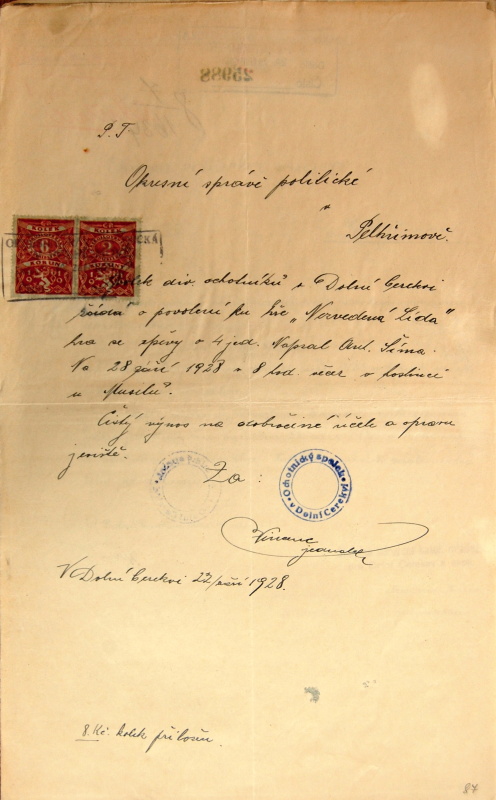 25988
P. T.
Okresní správě politické
v
Pelhřimově.
KOLEK KOLEK
6 2
KORUN KORUNY
Spolek div. ochotníků v Dolní Cerekvi
žádá o povolení ku hře „Nesvedená Lida"
hra se zpěvy o 4 jed. Napsal Ant. Šíma.
Na 28 září 1928 v 8 hod. več. v hostinci
u Musilů.
Čistý výnos na dobročinné účel a opravu
jeviště.
Za :
Ochotnický spolek
v Dolní Cerekvi
jednatel
V Dolní Cerekvi 22/září 1928.
8 Kč. kolek přiložen.
84